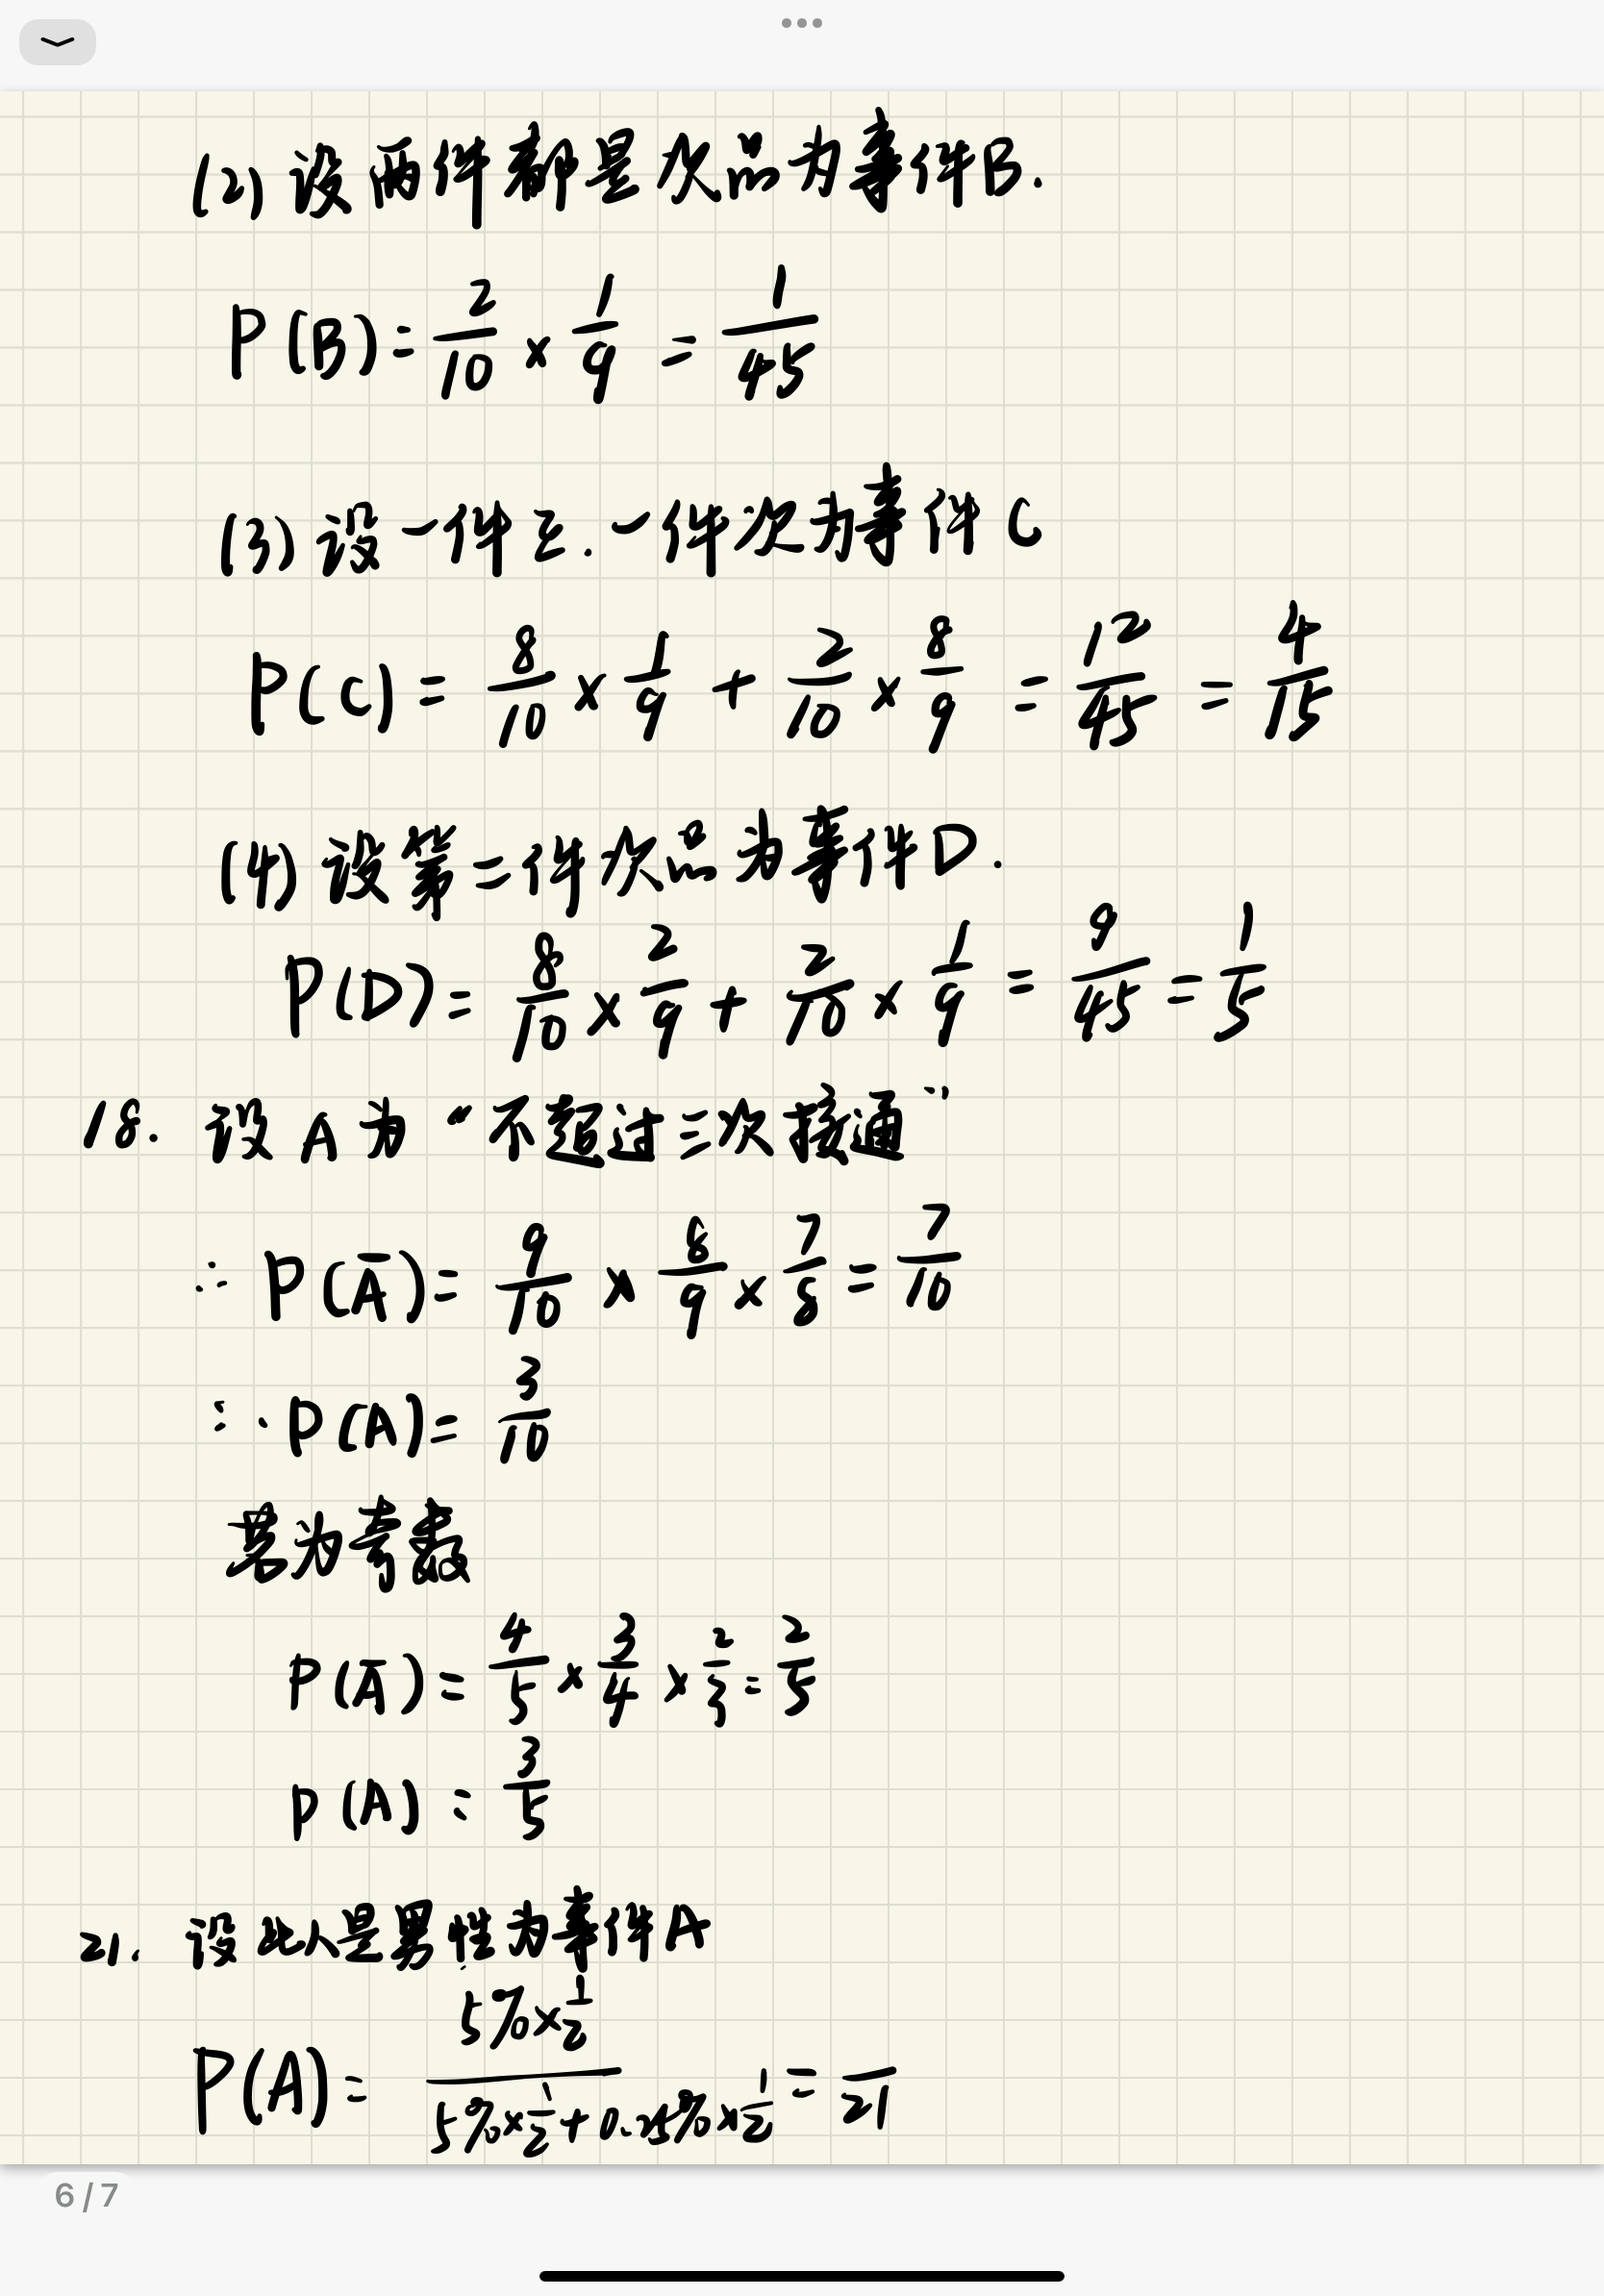 (2) 设两件都是次品为事件B.
P(B)= 2/10 × 1/9 = 1/45
(3) 设一件正.一件次为事件C
P(C) = 8/10 × 1/9 + 2/10 × 8/9 = 12/45 = 4/15
(4) 设第二件次品为事件D.
P(D)= 8/10 × 2/9 + 2/10 × 1/9 = 9/45 = 1/5
18. 设A为“不超过三次接通”
∴ P(Ā)= 9/10 × 8/9 × 7/8 = 7/10
∴ P(A)= 3/10
若为奇数
P(Ā)= 4/5 × 3/4 × 2/3 = 2/5
P(A) = 3/5
21. 设此人是男性为事件A
P(A)= (5%×1/2)/(5%×1/2+0.25%×1/2) = /21
6/7